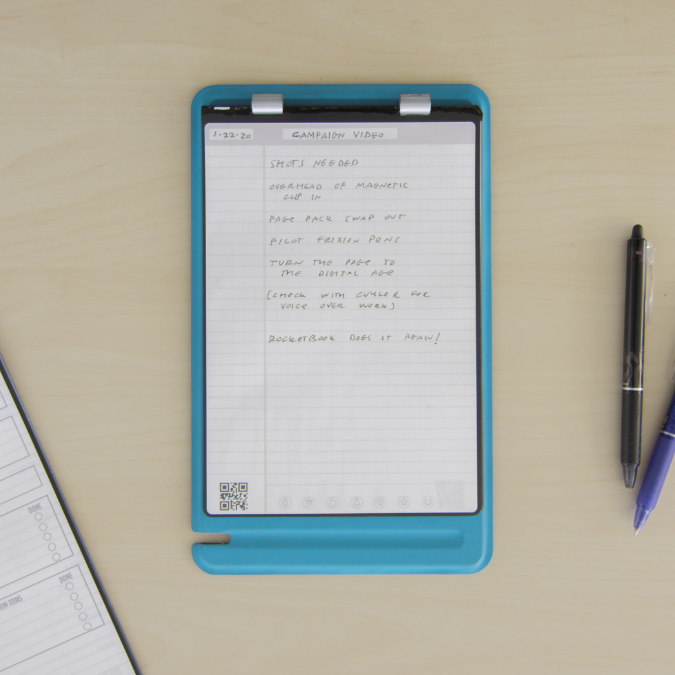 1-22-20 CAMPAIGN VIDEO
SHOTS NEEDED
OVERHEAD OF MAGNETIC
CLIP IN
PAGE PACK SWAP OUT
PILOT FRIXION PENS
TURN THE PAGE TO
THE DIGITAL AGE
[CHECK WITH FOR
VOICE OVER WORK]
ROCKETBOOK DOES IT AGAIN!
DONE
DONE
ITEMS